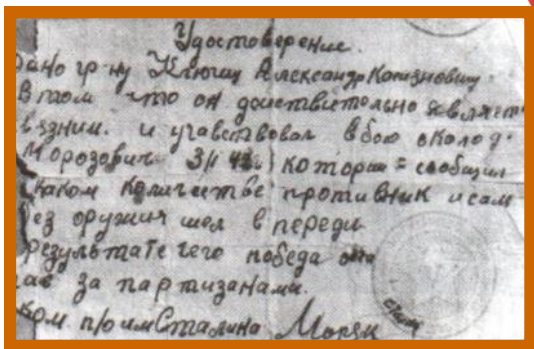 Удостоверение.
Дано гр-ну Ключиц Александр Казизнович
В том что он действительно являет
вязним. и учавствовал в бою около д.
Морозович 3/II 42 г. которий = сообщил
каком количестве противник и сам
без оружия шел в переди
результате чего победа
за партизанами.
ком. п/о им Сталина